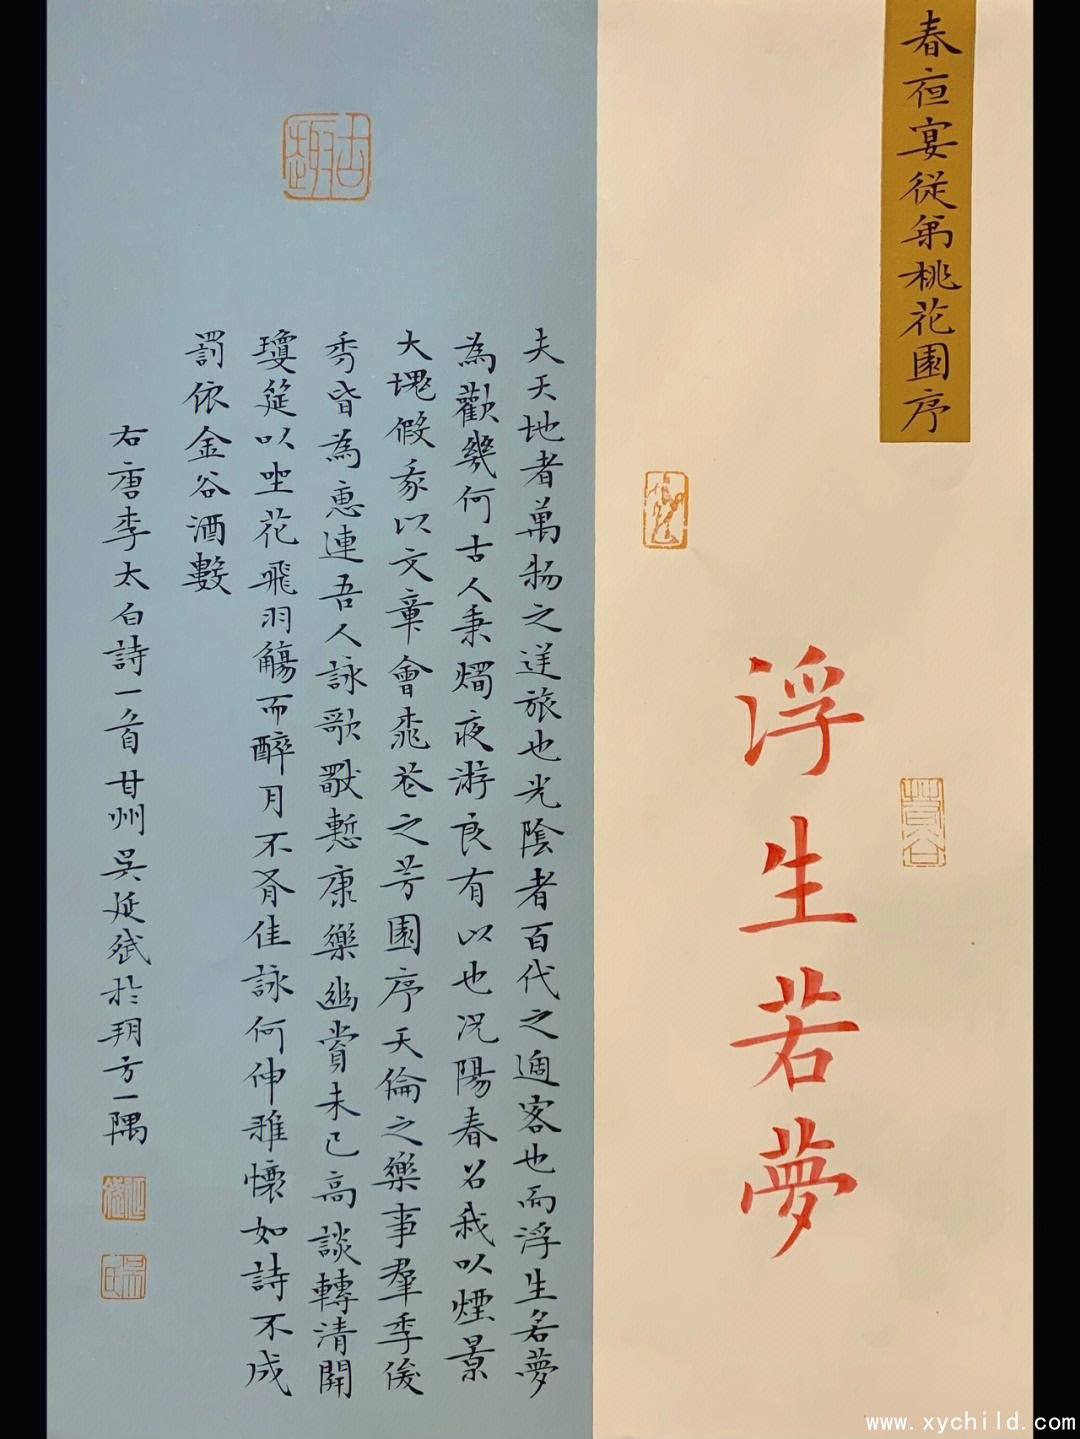 春夜宴從弟桃花園序
浮生若夢
夫天地者萬物之逆旅也光陰者百代之過客也而浮生若夢
為歡幾何古人秉燭夜游良有以也況陽春召我以煙景
大塊假我以文章會桃花之芳園序天倫之樂事羣季俊
秀皆為惠連吾人詠歌獨慙康樂幽賞未已高談轉清開
瓊筵以坐花飛羽觴而醉月不有佳詠何伸雅懷如詩不成
罰依金谷酒數
右唐李太白詩一首甘州吳延斌於朔方一隅
古趣
www.xychild.com